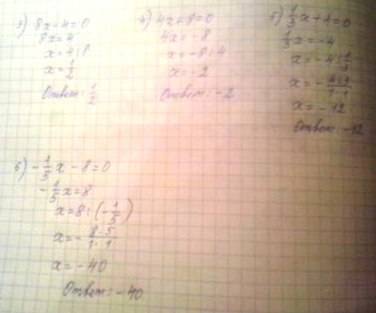 3) 8x-4=0
8x=4
x=4:8
x=1/2
Ответ: 1/2
4) 4x+8=0
4x=-8
x=-8:4
x=-2
Ответ: -2
5) 1/3x+4=0
1/3x=-4
x=-4:1/3
x=-4·3/1·1
x=-12
Ответ: -12
6) -1/5x-8=0
-1/5x=8
x=8:(-1/5)
x=-8·5/1·1
x=-40
Ответ: -40